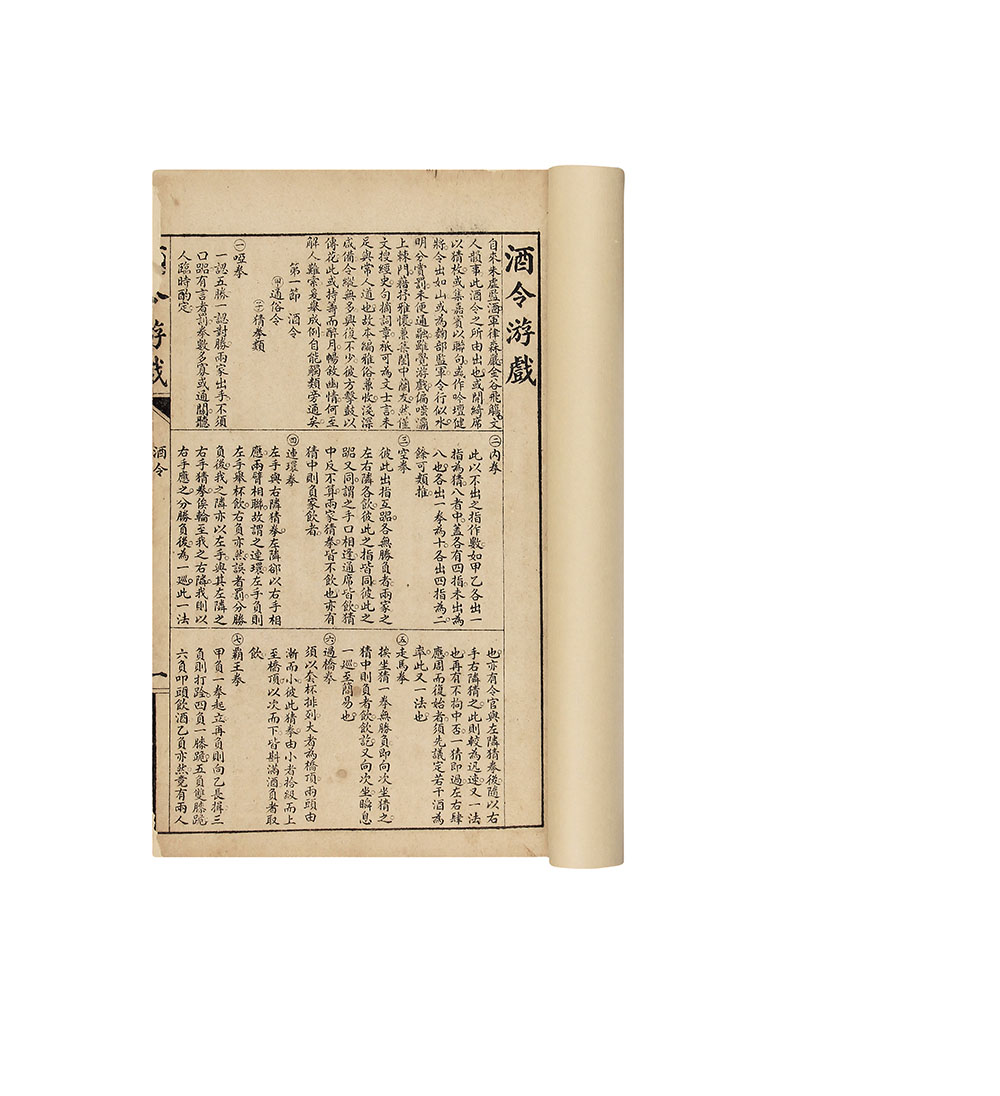 酒令游戲
自來朱虛監酒軍律森嚴金谷飛觴文
人韻事此酒令之所由出也或開綺席
以猜枚或集嘉賓以聯句或作吟壇健
將令出如山或為麴部監軍令行似水
明分賞罰未便通融雖覺游戲偏嗤灞
上棘門藉抒雅懷兼藂閨中蘭友然僅
文搜經史句摘詞章祇可為文士言未
足與常人道也故本編雅俗兼收淺深
咸備令縱無多興復不少彼方擊鼓以
傳花此或持螯而醉月暢敘幽情何至
解人難索爰舉成例自能觸類旁通矣
第一節 酒令
㊥通俗令
㊀猜拳類
㊀啞拳
一認五勝一認對勝兩家出手不須
口韶有言者罰拳數多寡或通關聽
人臨時酌定
㊁內拳
此以不出之指作數如甲乙各出一
指為猜八者中蓋各有四指未出為
八也各出一拳為十各出四指為二
餘可類推
㊂空拳
彼此出指互韶各無勝負者兩家之
左右隣各飲彼此之指皆同彼此之
韶又同謂之手口相逢通席皆飲猜
中反不算兩家猜拳皆不飲也亦有
猜中則負家飲者
㊃連環拳
左手與右隣猜拳左隣卻以右手相
應兩臂相聯故謂之連環左手負則
左手舉杯飲右負亦然誤者罰分勝
負後我之隣亦以左手與其左隣之
右手猜拳俟輪至我之右隣我則以
右手應之分勝負後為一巡此一法
也亦有令官與左隣猜拳後隨以右
手右隣猜之此則較為迅速又一法
也再有不拘中否一猜即過左右肄
應周而復始者須先議定若干酒為
率此又一法也
㊄走馬拳
挨坐猜一拳無勝負即向次坐猜之
猜中則負者飲飲訖又向次坐瞬息
一巡至簡易也
㊅過橋拳
須以套杯排列大者為橋頂兩頭由
漸而小彼此猜拳由小者拾級而上
至橋頂以次而下皆斟滿酒負者取
飲
㊆霸王拳
甲負一拳起立再負則向乙長揖三
負則打跧四負一膝跪五負雙膝跪
六負叩頭飲酒乙負亦然竟有兩人
酒令
一